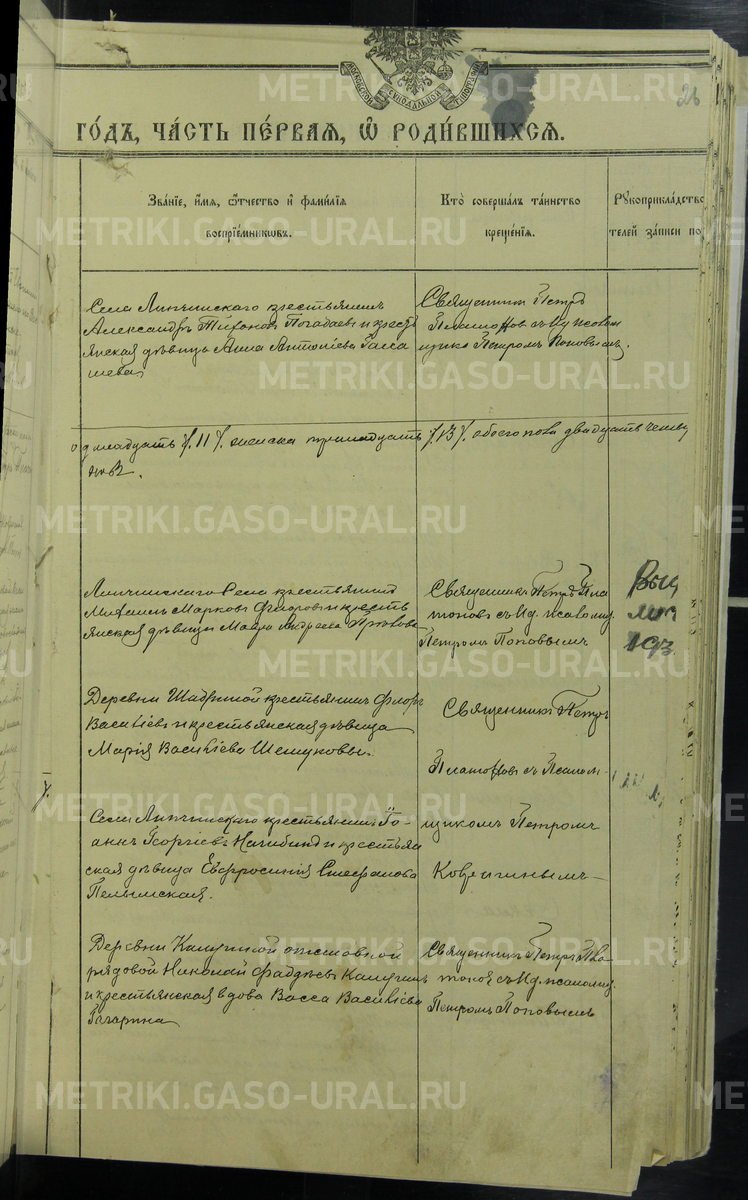 METRIKI.GASO-URAL.RU
МОСКОВСКОЙ СѴНОДАЛЬНОЙ ТИПОГРАФІИ
26
ГО́ДЪ, ЧА́СТЬ ПЕ́РВАЯ, Ѿ РОДИ́ВШИХСЯ.
Зва́ніе, и҆́мя, ѻ҆́тчество и҆ фами́лія
воспріе́мникѡвъ.
Кто̀ соверша́лъ та́инство
креще́нія.
Рꙋкоприкла́дство
телей за́писи по
Села Липчинскаго крестьянинъ
Александръ Тихоновъ Погадаевъ и кресть
янская дѣвица Анна Антоніева
Священникъ Петръ
Платоновъ съ
Петромъ Поповымъ.
одиннадцать /11/. женска тринадцать /13/. обоего пола двадцать четы
ре.
Липчинскаго Села крестьянинъ
Михаилъ Марковъ и кресть
янская дѣвица Мавра Андреева
Священникъ Петръ Пла
тоновъ съ И.д. псаломщ.
Петромъ Поповымъ
Деревни Шадриной крестьянинъ Флоръ
Васильевъ и крестьянская дѣвица
Марія Васильева Шешуковы.
Священникъ Петръ
Платоновъ съ Псалом-
щикомъ Петромъ
Села Липчинскаго крестьянинъ Іо-
аннъ Георгіевъ Нагибинъ и крестьян
ская дѣвица Евфросинія Стефанова
Пелымская.
Деревни отставной
рядовой Николай Фаддѣевъ
и крестьянская вдова Васса Васильева
Гагарина
Священникъ Петръ Пла
тоновъ съ И.д. псаломщ.
Петромъ Поповымъ